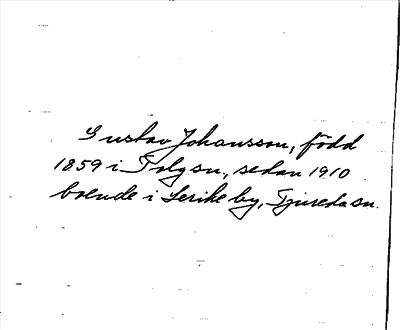 Gustav Johansson, född
1859 i Tolg sn., sedan 1910
boende i Lerike by, Tjureda sn.